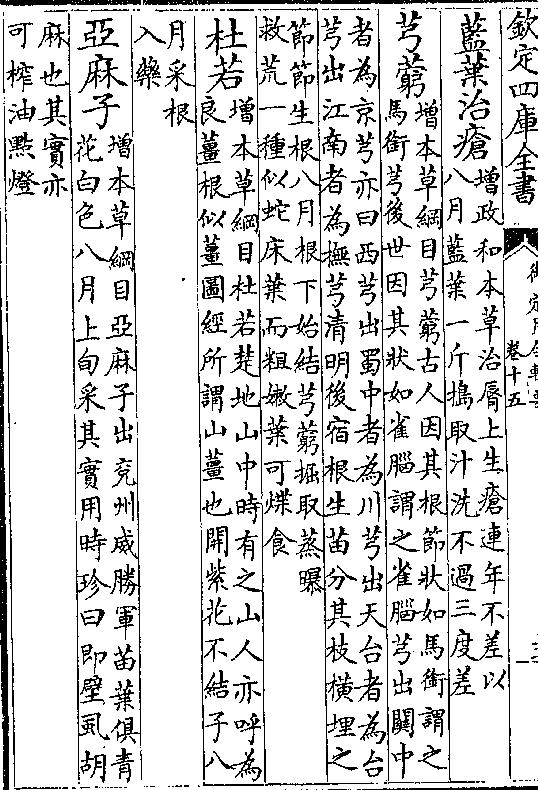 欽定四庫全書
卷十五
藍葉治瘡
增政和本草治脣上生瘡連年不差以
八月藍葉一斤搗取汁洗不過三度差
芎藭
增本草綱目芎藭古人因其根節狀如馬銜謂之
馬銜芎後世因其狀如雀腦謂之雀腦芎出關中
者為京芎亦曰西芎出蜀中者為川芎出天台者為台
芎出江南者為撫芎清明後宿根生苗分其枝橫埋之
節節生根八月根下始結芎藭掘取蒸曝
救荒一種似蛇床葉而粗嫩葉可煠食
杜若
增本草綱目杜若楚地山中時有之山人亦呼為
良薑根似薑圖經所謂山薑也開紫花不結子八
月采根
入藥
亞麻子
增本草綱目亞麻子出兗州威勝軍苗葉俱青
花白色八月上旬采其實用時珍曰即壁虱胡
麻也其實亦
可榨油點燈